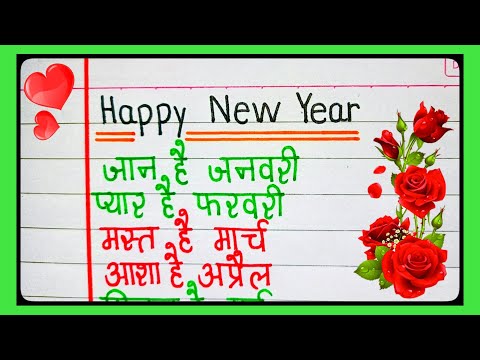 Happy New Year
जान है जनवरी
प्यार है फरवरी
मस्त है मार्च
आशा है अप्रैल